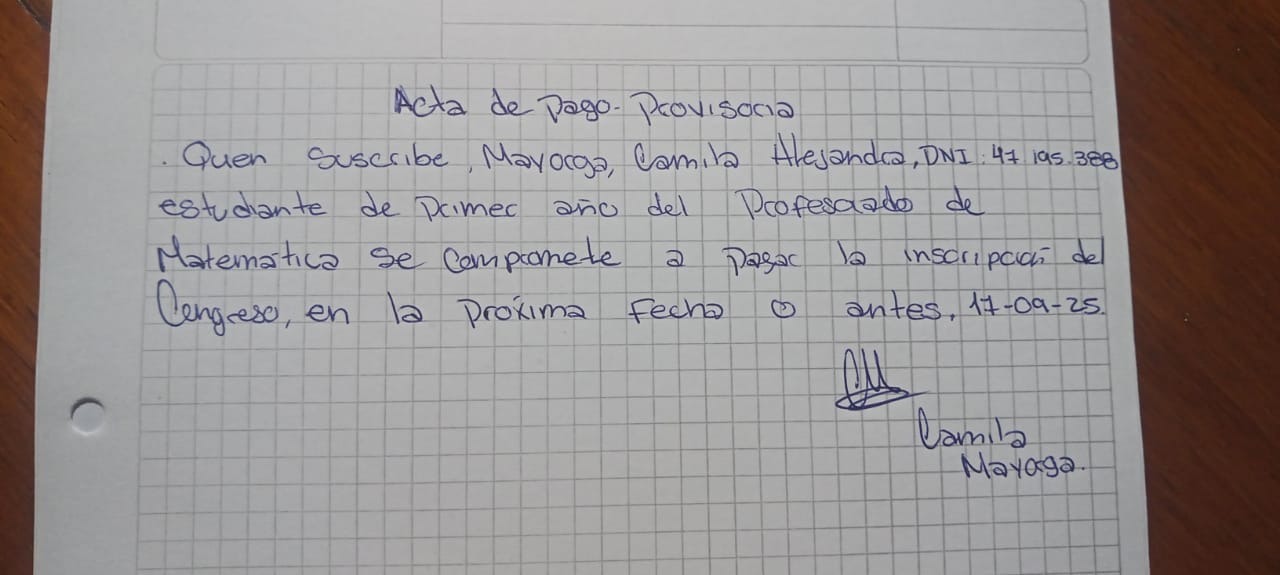 Acta de pago. Provisoria
. Quen suscribe, Mayorga, Camila Alejandra, DNI: 47 195.388
estudiante de primer año del Profesorado de
Matemática se compromete a pagar la inscripción del
Congreso, en la próxima fecha o antes, 17-09-25.
CM
Camila
Mayorga.